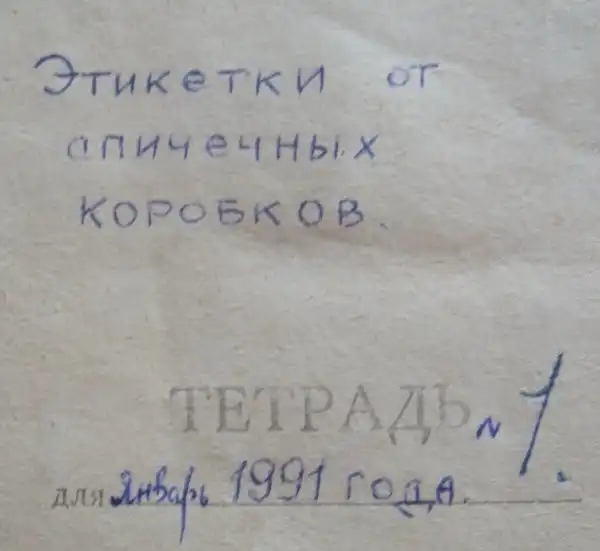 Этикетки от
спичечных
коробков.
ТЕТРАДЬ N 1.
для Январь 1991 года.